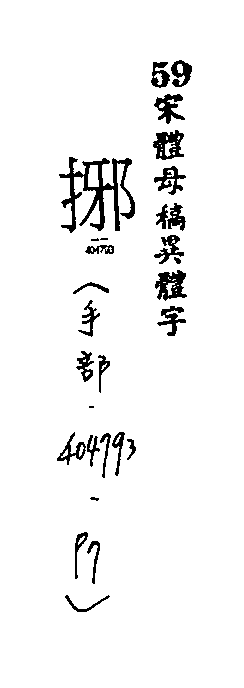 59宋體母稿異體字
挪
404793
（手部-404793-P7）